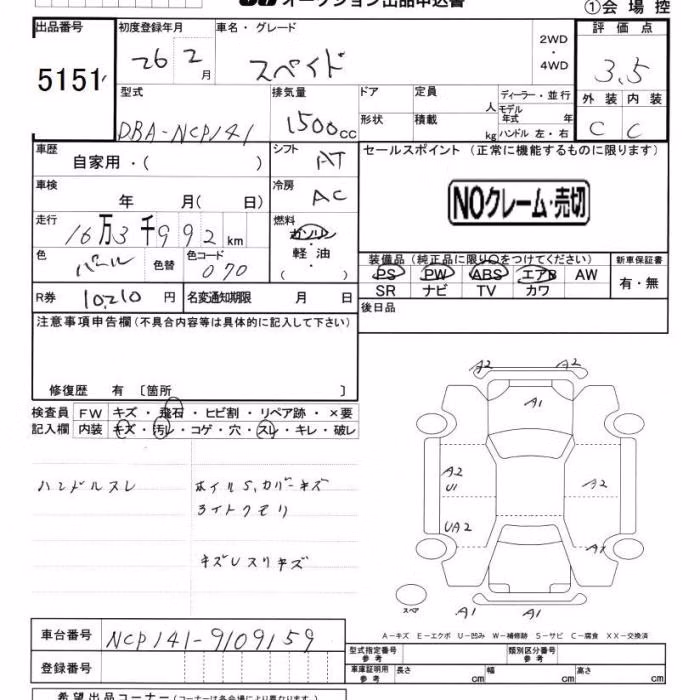 オークション出品申込書 ①会場控
出品番号 初度登録年月 車名・グレード 2WD・4WD 評価点
5151 26 2月 スペイド 3.5
型式 排気量 ドア 定員 人 ディーラー・並行 外装 内装
DBA-NCP141 1500cc 形状 積載 kg モデル年式 年 ハンドル 左・右 C C
車歴 自家用・( ) シフト AT セールスポイント (正常に機能するものに限ります)
車検 年 月( 日) 冷房 AC NOクレーム・売切
走行 16万3千992km 燃料 ガソリン・軽油・( )
色 パール 色替 色コード 070 装備品 (純正品に限り○をつけてください) 新車保証書
PS PW ABS エアB AW 有・無
SR ナビ TV カワ
R券 10,210円 名変通知期限 月 日 後日品
注意事項申告欄 (不具合内容等は具体的に記入して下さい)
修復歴 有 〔箇所 〕
検査員 FW キズ・飛石・ヒビ割・リペア跡・×要
記入欄 内装 キズ・汚レ・コゲ・穴・スレ・キレ・破レ
ハンドルスレ ホイルS,カバーキズ
ライトクモリ
キズUスリキズ
A2 A2
A1
A2
U1 A2
UA2 A1
スペア A1 A1
A-キズ E-エクボ U-凹み W-補修跡 S-サビ C-腐食 XX-交換済
車台番号 NCP141-9109159
型式指定番号 参考 類別区分番号 参考
登録番号 車庫証明用 参考 長さ cm 幅 cm 高さ cm
希望出品コーナー (コーナーは各会場により異なります)